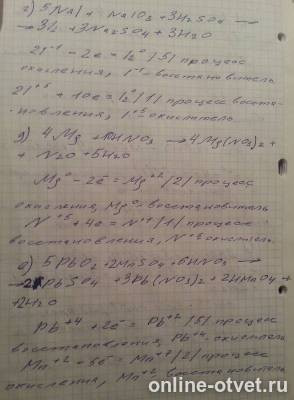 г) 5NaI + NaIO3 + 3H2SO4 →
→ 3I2 + 3Na2SO4 + 3H2O
2I⁻¹ - 2e = I2⁰ |5| процесс
окисления, I⁻¹ - восстановитель
2I⁺⁵ + 10e = I2⁰ |1| процесс восста-
-новления, I⁺⁵ окислитель
д) 4Mg + HNO3 → 4Mg(NO3)2 +
+ N2O + 5H2O
Mg⁰ - 2e = Mg⁺² |2| процесс
окисления, Mg⁰ восстановитель
N⁺⁵ + 4e = N⁺¹ |1| процесс
восстановления, N⁺⁵ окислитель.
е) 5PbO2 + 2MnSO4 + 6HNO3 →
→ 2PbSO4 + 3Pb(NO3)2 + 2HMnO4 +
+2H2O
Pb⁺⁴ + 2e = Pb⁺² |5| процесс
восстановления, Pb⁺⁴ окислитель
Mn⁺² - 5e = Mn⁺⁷ |2| процесс
окисления, Mn⁺² восстановитель
online-otvet.ru